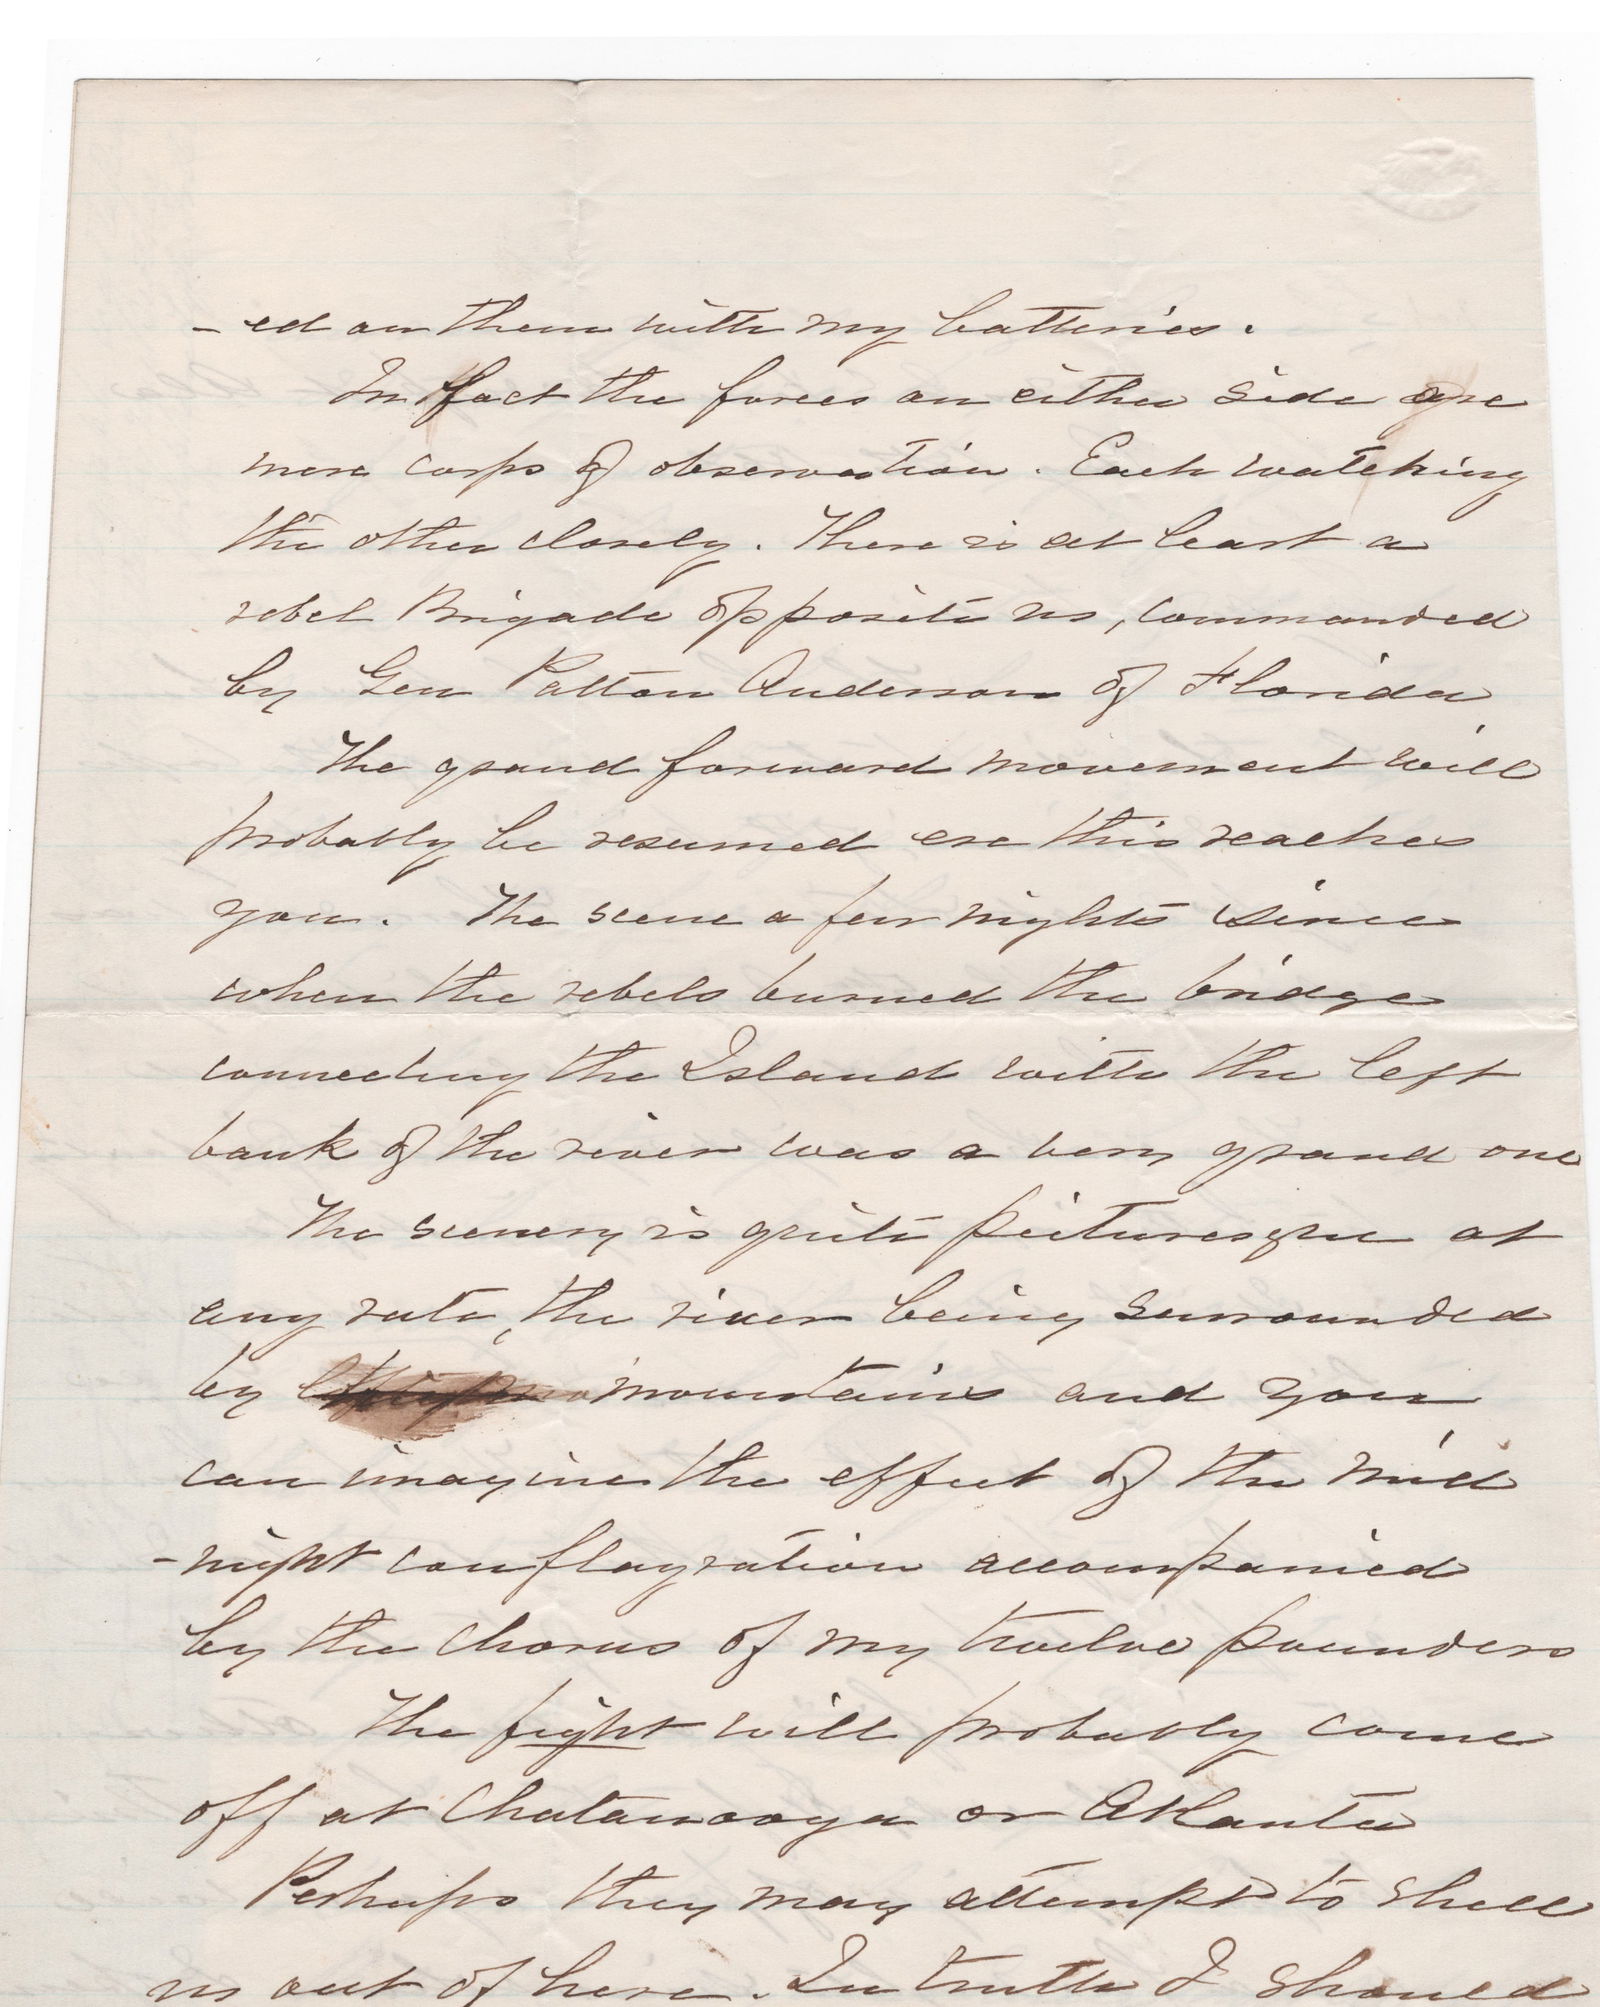 -ed on them with my batteries.
In fact the forces on either side are
mere corps of observation. Each watching
the other closely. There is at least a
rebel Brigade opposite us, commanded
by Gen Patton Anderson of Florida
The grand forward movement will
probably be resumed ere this reaches
you. The scene a few nights since
when the rebels burned the bridge
connecting the Island with the left
bank of the river was a very grand one
The scenery is quite picturesque at
any rate, the river being surrounded
by mountains and you
can imagine the effect of the mid
-night conflagration accompanied
by the chorus of my twelve pounders
The fight will probably come
off at Chatanooga or Atlanta
Perhaps they may attempt to shell
us out of here. In truth I should